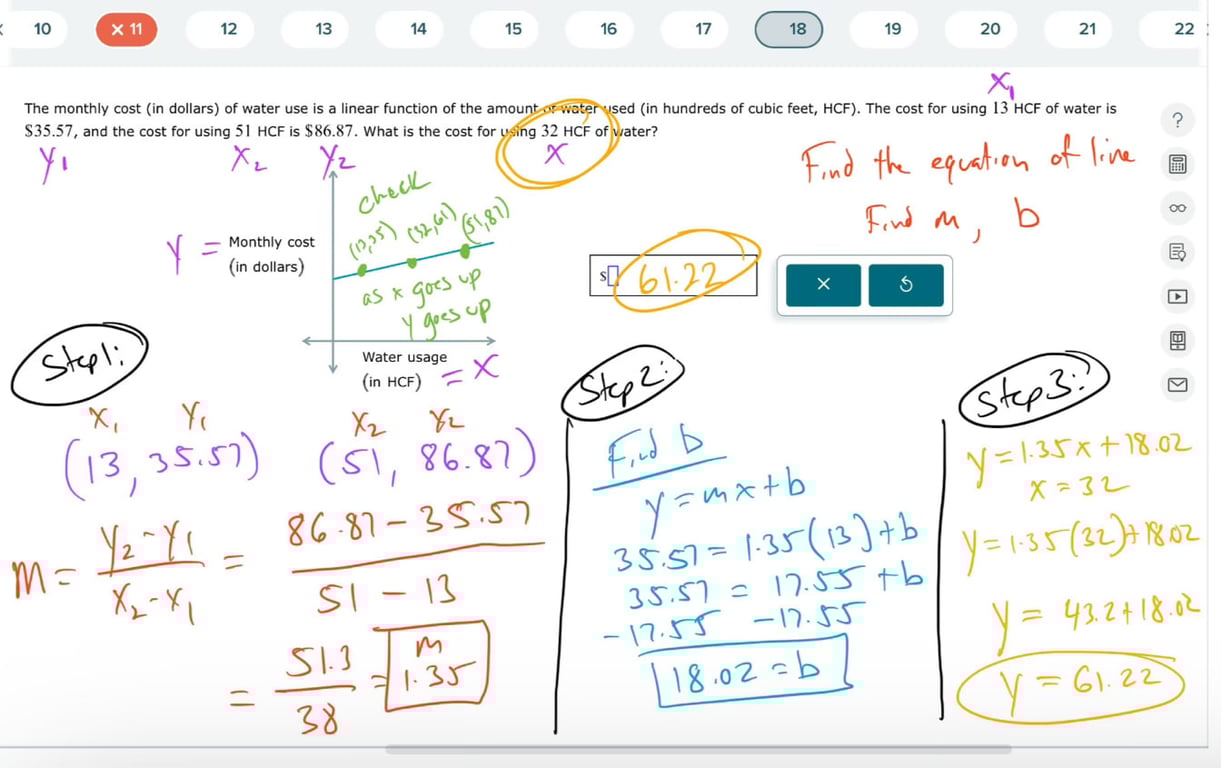 10 × 11 12 13 14 15 16 17 18 19 20 21 22
X₁
The monthly cost (in dollars) of water use is a linear function of the amount of water used (in hundreds of cubic feet, HCF). The cost for using 13 HCF of water is
$35.57, and the cost for using 51 HCF is $86.87. What is the cost for using 32 HCF of water?
Y₁ X₂ Y₂ X
Find the equation of line
Find m, b
check
(13,35) (32,61) (51,87)
Y = Monthly cost
(in dollars)
as x goes up
y goes up
Water usage
(in HCF) = X
$ 61.22
×
?
Step 1:
X₁ Y₁ X₂ Y₂
(13, 35.57) (51, 86.87)
m = Y₂-Y₁ / X₂-X₁ = 86.87 - 35.57 / 51 - 13
= 51.3 / 38 = m 1.35
Step 2:
Find b
y = mx + b
35.57 = 1.35(13) + b
35.57 = 17.55 + b
-17.55 -17.55
18.02 = b
Step 3:
y = 1.35x + 18.02
x = 32
y = 1.35(32) + 18.02
y = 43.2 + 18.02
y = 61.22